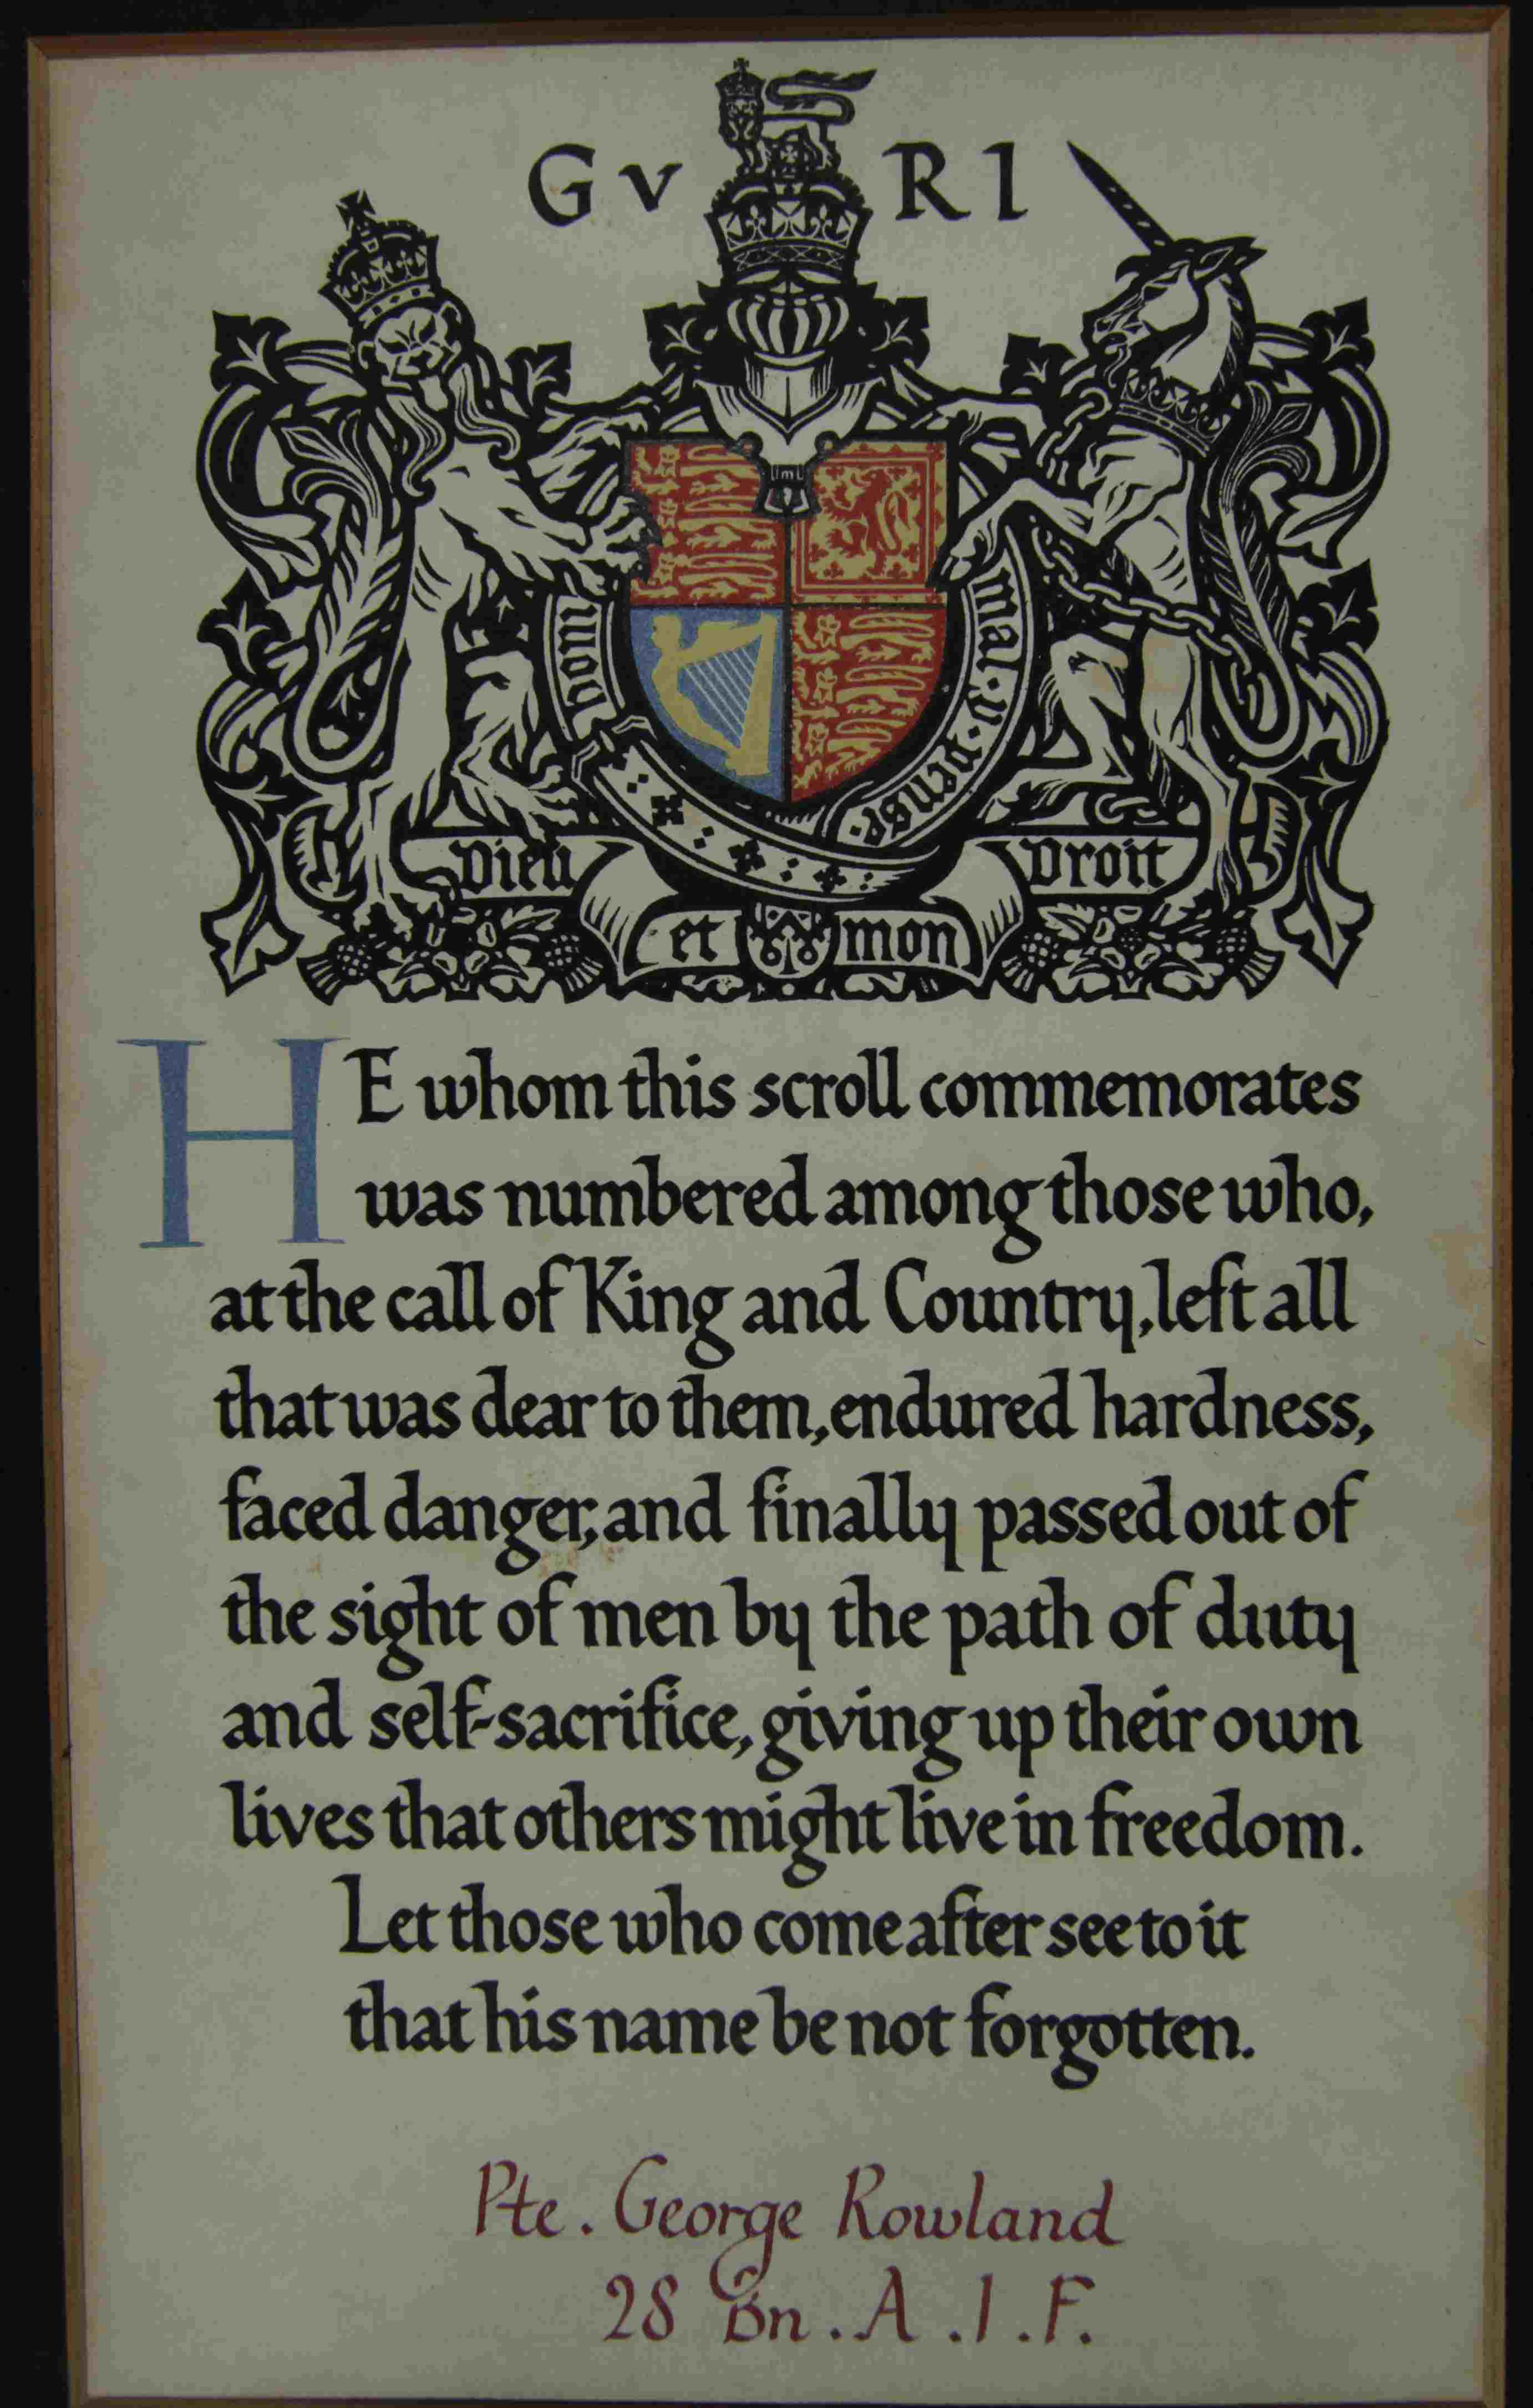 G V R I
mal·y·pense·
Dieu Droit
et mon
HE whom this scroll commemorates
was numbered among those who,
at the call of King and Country, left all
that was dear to them, endured hardness,
faced danger, and finally passed out of
the sight of men by the path of duty
and self-sacrifice, giving up their own
lives that others might live in freedom.
Let those who come after see to it
that his name be not forgotten.
Pte. George Rowland
28 Bn. A.I.F.